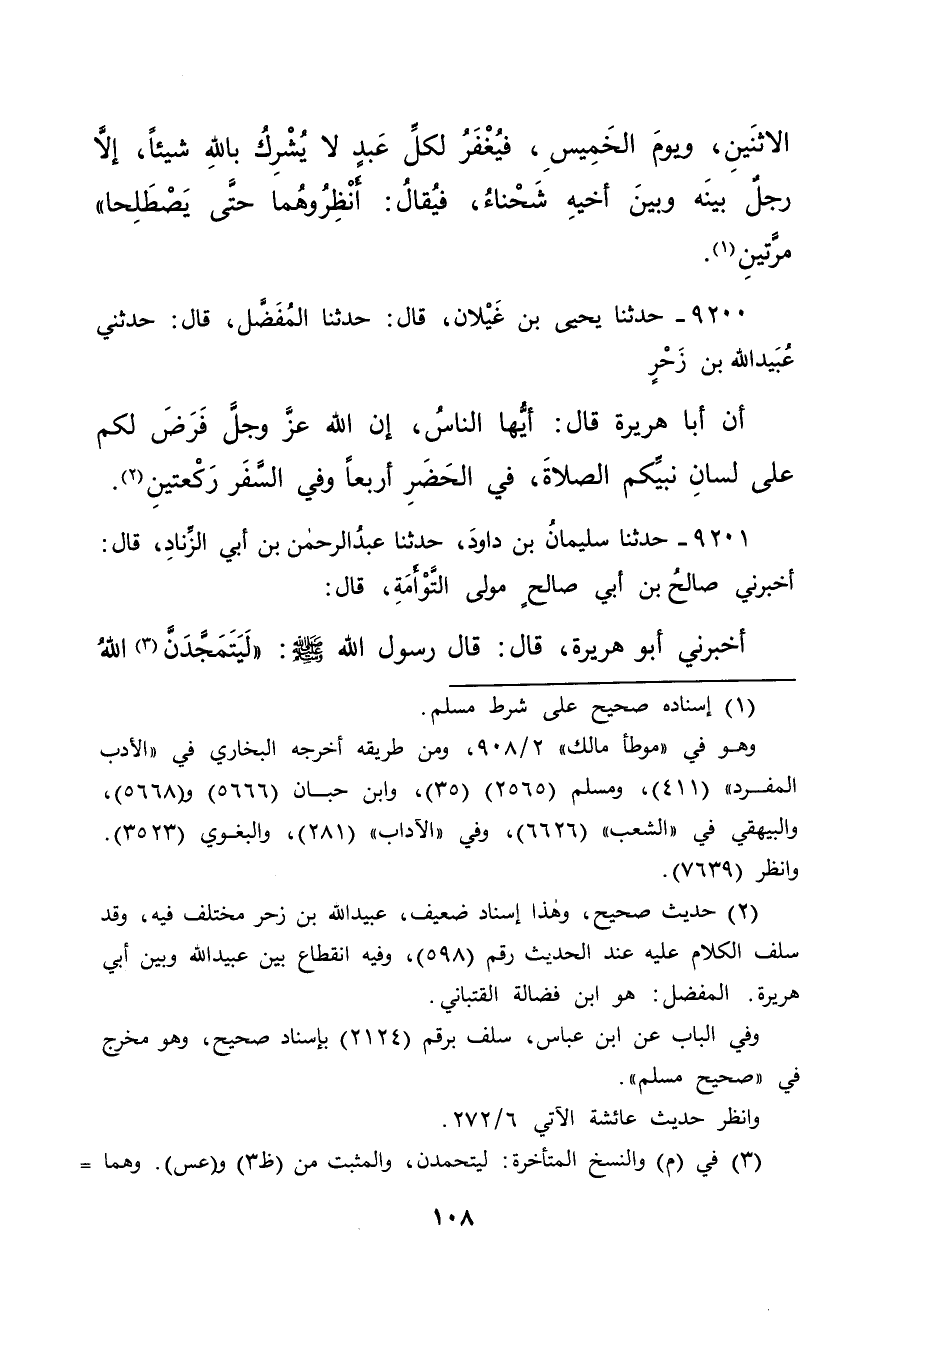 الاثنَينِ، ويومَ الخَمِيسِ، فيُغْفَرُ لكلِّ عَبدٍ لا يُشْرِكُ باللهِ شيئاً، إلَّا
رجلٌ بينَه وبينَ أخيهِ شَحْناءُ، فيُقالُ: أَنْظِرُوهُما حتَّى يَصْطَلِحا»
مرَّتينِ(١).
٩٢٠٠ـ حدثنا يحيى بن غَيْلان، قال: حدثنا المُفَضَّل، قال: حدثني
عُبَيدالله بن زَحْرٍ
أن أبا هريرة قال: أيُّها الناسُ، إن الله عزَّ وجلَّ فَرَضَ لكم
على لسانِ نبيِّكم الصلاةَ، في الحَضَرِ أربعاً وفي السَّفَر رَكْعتينِ(٢).
٩٢٠١ـ حدثنا سليمانُ بن داودَ، حدثنا عبدُالرحمٰن بن أبي الزِّنادِ، قال:
أخبرني صالحُ بن أبي صالحٍ مولى التَّوْأَمَةِ، قال:
أخبرني أبو هريرة، قال: قال رسول الله ﷺ: «لَيَتَمَجَّدَنَّ(٣) اللهُ
(١) إسناده صحيح على شرط مسلم.
وهو في «موطأ مالك» ٩٠٨/٢، ومن طريقه أخرجه البخاري في «الأدب
المفرد» (٤١١)، ومسلم (٢٥٦٥) (٣٥)، وابن حبان (٥٦٦٦) و(٥٦٦٨)،
والبيهقي في «الشعب» (٦٦٢٦)، وفي «الآداب» (٢٨١)، والبغوي (٣٥٢٣).
وانظر (٧٦٣٩).
(٢) حديث صحيح، وهٰذا إسناد ضعيف، عبيدالله بن زحر مختلف فيه، وقد
سلف الكلام عليه عند الحديث رقم (٥٩٨)، وفيه انقطاع بين عبيدالله وبين أبي
هريرة. المفضل: هو ابن فضالة القتباني.
وفي الباب عن ابن عباس، سلف برقم (٢١٢٤) بإسناد صحيح، وهو مخرج
في «صحيح مسلم».
وانظر حديث عائشة الآتي ٢٧٢/٦.
(٣) في (م) والنسخ المتأخرة: ليتحمدن، والمثبت من (ظ٣) و(عس). وهما =
١٠٨